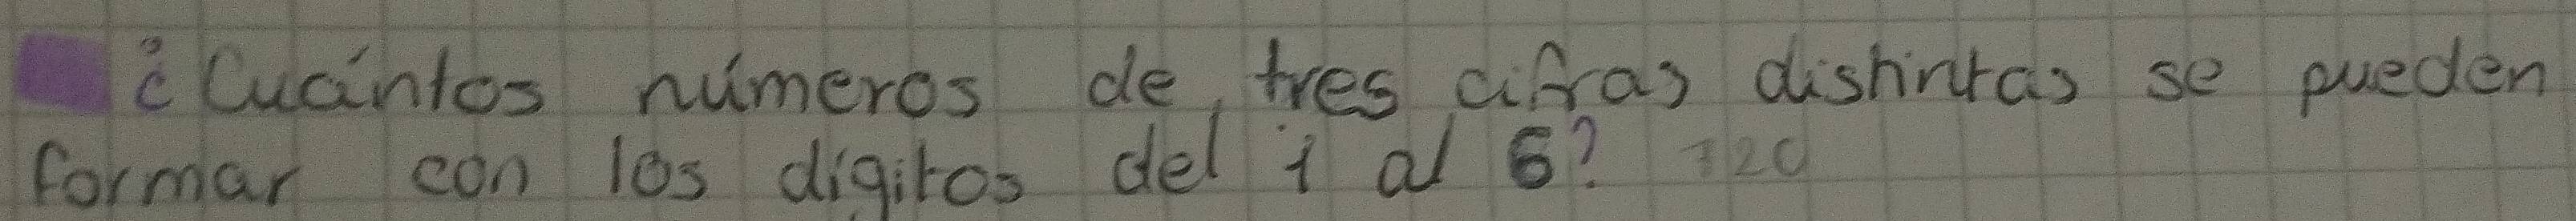 ¿Cuántos números de tres cifras distintas se pueden
formar con los dígitos del 1 al 6? 720